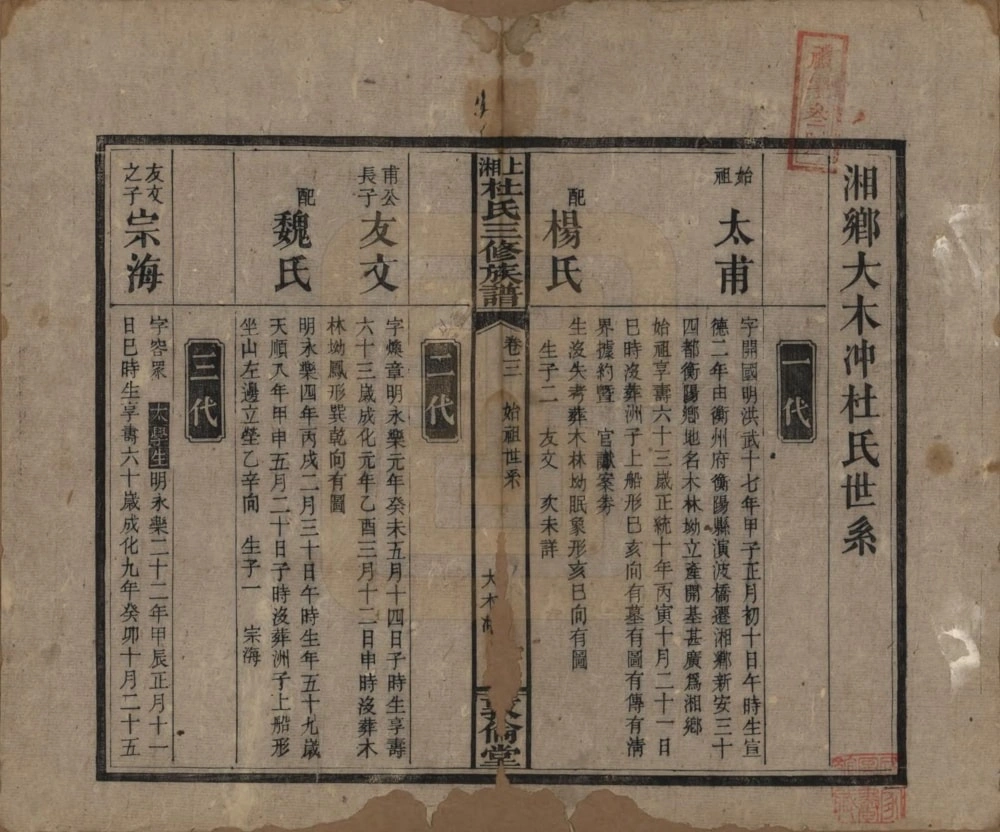 湘鄉大木冲杜氏世系
一代
始祖
太甫
字開國明洪武十七年甲子正月初十日午時生宣
德二年由衡州府衡陽縣演波橋遷湘鄉新安三十
四都衡陽鄉地名木林坳立產開基甚廣爲湘鄉
始祖享壽六十三歲正統十年丙寅十月二十一日
巳時沒葬洲子上船形巳亥向有墓有圖有傳有清
界據約暨 官讞案劵
配
楊氏
生沒失考葬木林坳眠象形亥巳向有圖
生子二 友文 次未詳
上湘杜氏三修族譜
卷三 始祖世系
大木
敦倫堂
二代
甫公長子
友文
字煥章明永樂元年癸未五月十四日子時生享壽
六十三歲成化元年乙酉三月十二日申時沒葬木
林坳鳳形巽乾向有圖
配
魏氏
明永樂四年丙戌二月三十日午時生年五十九歲
天順八年甲申五月二十日子時沒葬洲子上船形
坐山左邊立塋乙辛向 生子一 宗海
三代
友文之子
宗海
字容眾 太學生 明永樂二十二年甲辰正月十一
日巳時生享壽六十歲成化九年癸卯十月二十五